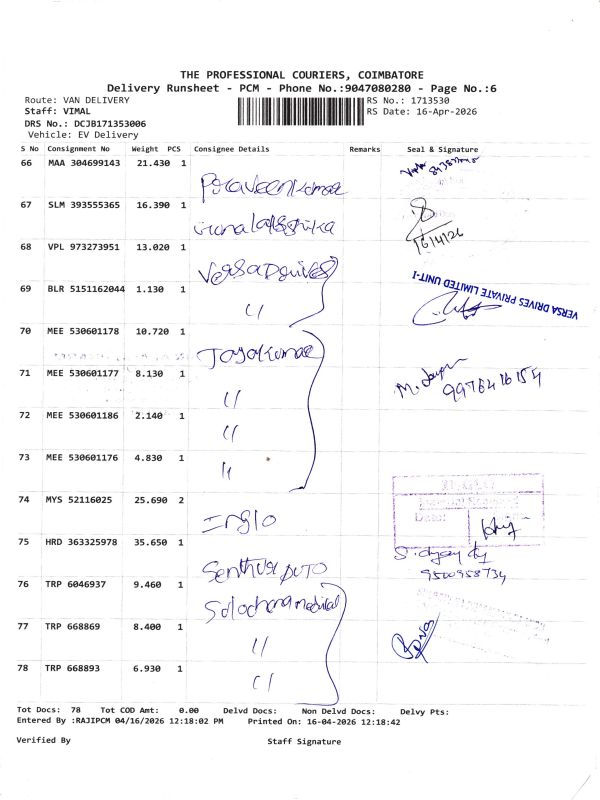 THE PROFESSIONAL COURIERS, COIMBATORE
Delivery Runsheet - PCM - Phone No.:9047080280 - Page No.:6
Route: VAN DELIVERY RS No.: 1713530
Staff: VIMAL RS Date: 16-Apr-2026
DRS No.: DCJB171353006
Vehicle: EV Delivery
S No Consignment No Weight PCS Consignee Details Remarks Seal & Signature
66 MAA 304699143 21.430 1 Praveenkumar
67 SLM 393555365 16.390 1
16/4/26
68 VPL 973273951 13.020 1 Versa Drives
69 BLR 5151162044 1.130 1 "
VERSA DRIVES PRIVATE LIMITED UNIT-I
70 MEE 530601178 10.720 1 Jayakumar
71 MEE 530601177 8.130 1 "
9976416154
72 MEE 530601186 2.140 1 "
73 MEE 530601176 4.830 1 "
74 MYS 52116025 25.690 2
Date:
75 HRD 363325978 35.650 1 Senthur Auto
9500958734
76 TRP 6046937 9.460 1 Sulochana medical
77 TRP 668869 8.400 1 "
78 TRP 668893 6.930 1 "
Tot Docs: 78 Tot COD Amt: 0.00 Delvd Docs: Non Delvd Docs: Delvy Pts:
Entered By :RAJIPCM 04/16/2026 12:18:02 PM Printed On: 16-04-2026 12:18:42
Verified By Staff Signature